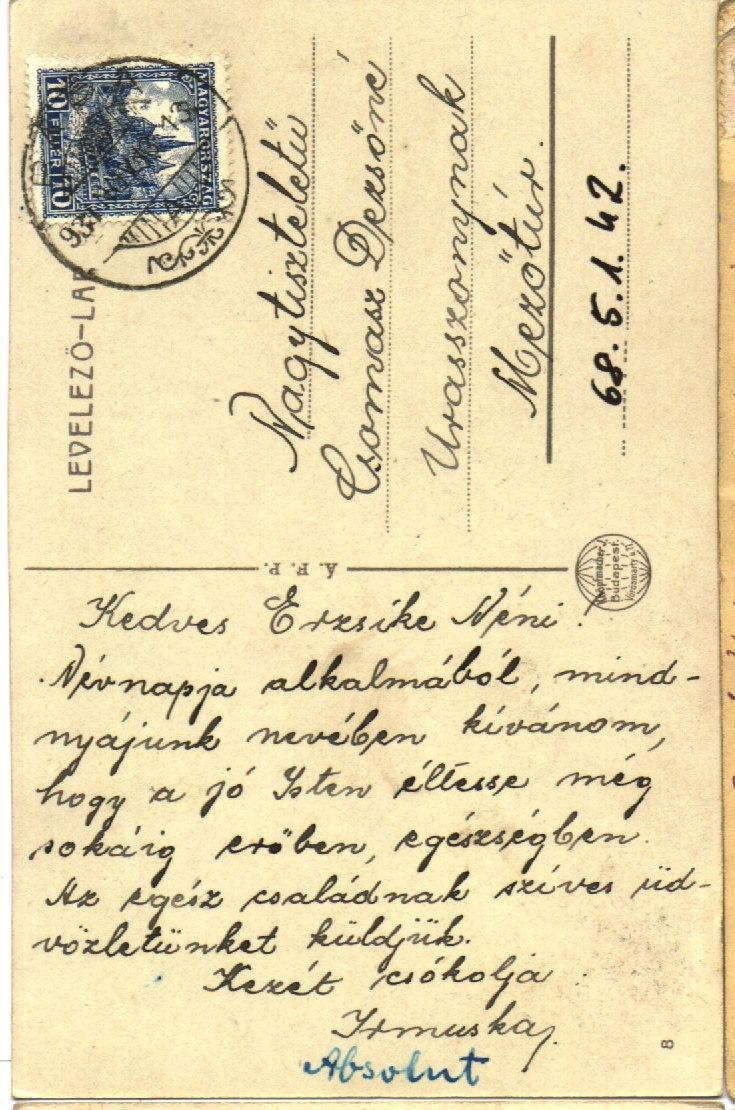 MAGYARORSZÁG
10 FILLÉR 10
LEVELEZŐ-LAP
Nagytiszteletű
Csomasz Dezsőné
Urasszonynak
Mezőtúr.
68.5.1.42.
Á. F. P.
Budapest.
Kedves Erzsike Néni!
Névnapja alkalmából, mind-
nyájunk nevében kívánom,
hogy a jó Isten éltesse még
sokáig erőben, egészségben.
Az egész családnak szíves üd-
vözletünket küldjük.
Kezét csókolja
Irmuska
Absolut
8